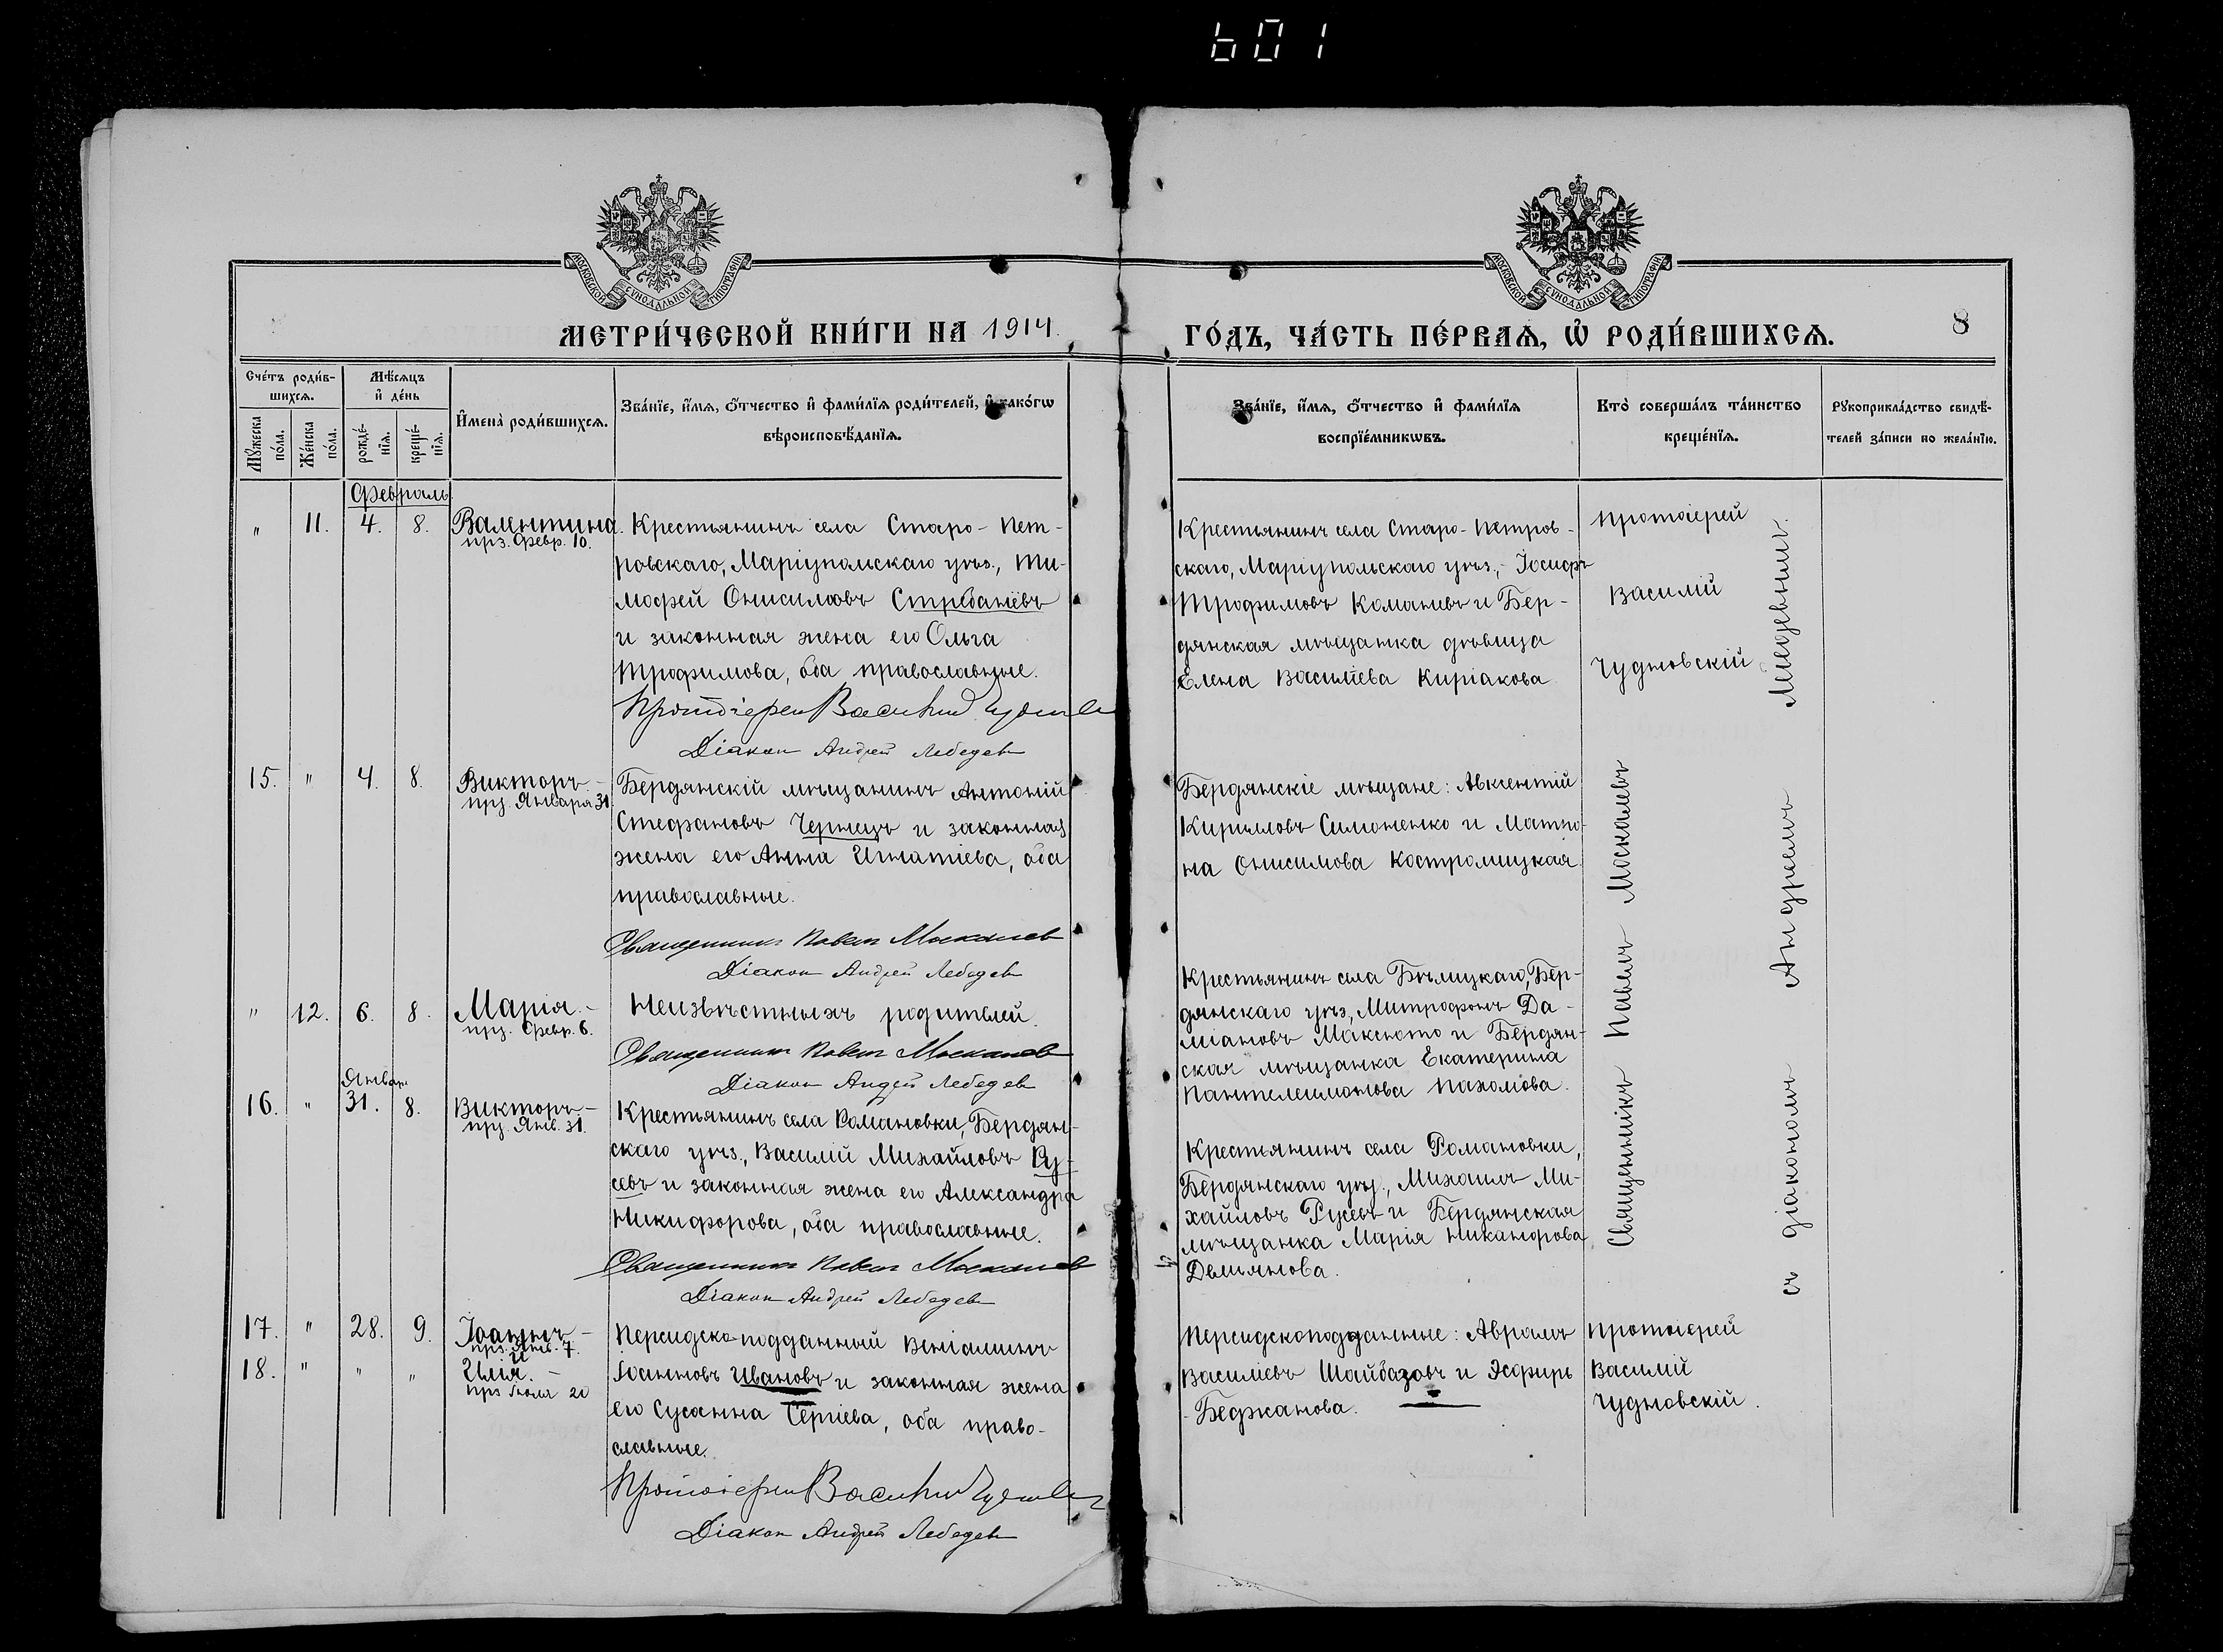 601
МОСКОВСКОЙ СѴНОДАЛЬНОЙ ТИПОГРАФІИ
МОСКОВСКОЙ СѴНОДАЛЬНОЙ ТИПОГРАФІИ
МЕТРИ́ЧЕСКОЙ КНИ́ГИ НА 1914.
ГО́ДЪ, ЧА́СТЬ ПЕ́РВАѦ, Ѡ҆ РОДИ́ВШИХСѦ.
8
Сче́тъ роди́в-
шихсѧ.
Мꙋ́жеска
по́ла.
Же́нска
по́ла.
Мѣ́сѧцъ
и҆ де́нь
рожде́-
нїѧ.
креще́-
нїѧ.
И҆мена̀ роди́вшихсѧ.
Зва́нїе, и҆́мѧ, ѻ҆́тчество и҆ фами́лїѧ роди́телей, и҆ како́гѡ
вѣроисповѣ́данїѧ.
Зва́нїе, и҆́мѧ, ѻ҆́тчество и҆ фами́лїѧ
воспрїе́мникѡвъ.
Кто̀ соверша́лъ та́инство
креще́нїѧ.
Рꙋкоприкла́дство свидѣ́-
телей за́писи по жела́нїю.
Февраль
" 11. 4. 8. Валентина.
прз. Февр. 10.
Крестьянинъ села Старо-Пет-
ровскаго, Маріупольскаго уѣз., Ти-
мофей Онисимовъ
и законная жена его Ольга
Трофимова, оба православные.
Протоіерей Василій
Діакон Андрей Лебедев
Крестьянинъ села Старо-Петров-
скаго, Маріупольскаго уѣз., Іосифъ
Трофимовъ Команевъ и Бер-
дянская мѣщанка дѣвица
Елена Васильева Киріакова
Протоіерей
Василій
Чудновскій
15. " 4. 8. Викторъ-
прз. Января 31.
Бердянскій мѣщанинъ Антоній
Стефановъ Чернецъ и законная
жена его Анна Игнатіева, оба
православные.
Священникъ Павелъ Москалев
Діакон Андрей Лебедев
Бердянскіе мѣщане: Авксентій
Кирилловъ Симоненко и Матро-
на Онисимова Костромицкая
" 12. 6. 8. Марія.-
прз. Февр. 6.
Неизвѣстныхъ родителей.
Священникъ Павелъ Москалев
Діакон Андрей Лебедев
Крестьянинъ села Бѣлицкаго, Бер-
дянскаго уѣз., Митрофанъ Да-
міановъ Максюто и Бердян-
ская мѣщанка Екатерина
Пантелеимонова Пахомова.
Январь
16. " 31. 8. Викторъ-
прз. Янв. 31.
Крестьянинъ села Романовки, Бердян-
скаго уѣз., Василій Михайловъ Ру-
севъ и законная жена его Александра
Никифорова, оба православные.
Священникъ Павелъ Москалев
Діакон Андрей Лебедев
Крестьянинъ села Романовки,
Бердянскаго уѣз., Михаилъ Ми-
хайловъ Русевъ и Бердянская
мѣщанка Марія Никанорова
Демьянова.
Священникъ Павелъ Москалевъ
съ діакономъ Андреемъ
17. " 28. 9. Іоаннъ-
прз. Янв. 7.
и
18. " " " Илія.-
прз Іюля 20
Персидско-подданный Веніаминъ
Іоанновъ Ивановъ и законная жена
его Сусанна Сергіева, оба право-
славные.
Протоіерей Василій
Діакон Андрей Лебедев
Персидскоподданные: Аврамъ
Василіевъ Шайбазовъ и Эсфирь
Беджанова.
Протоіерей
Василій
Чудновскій.